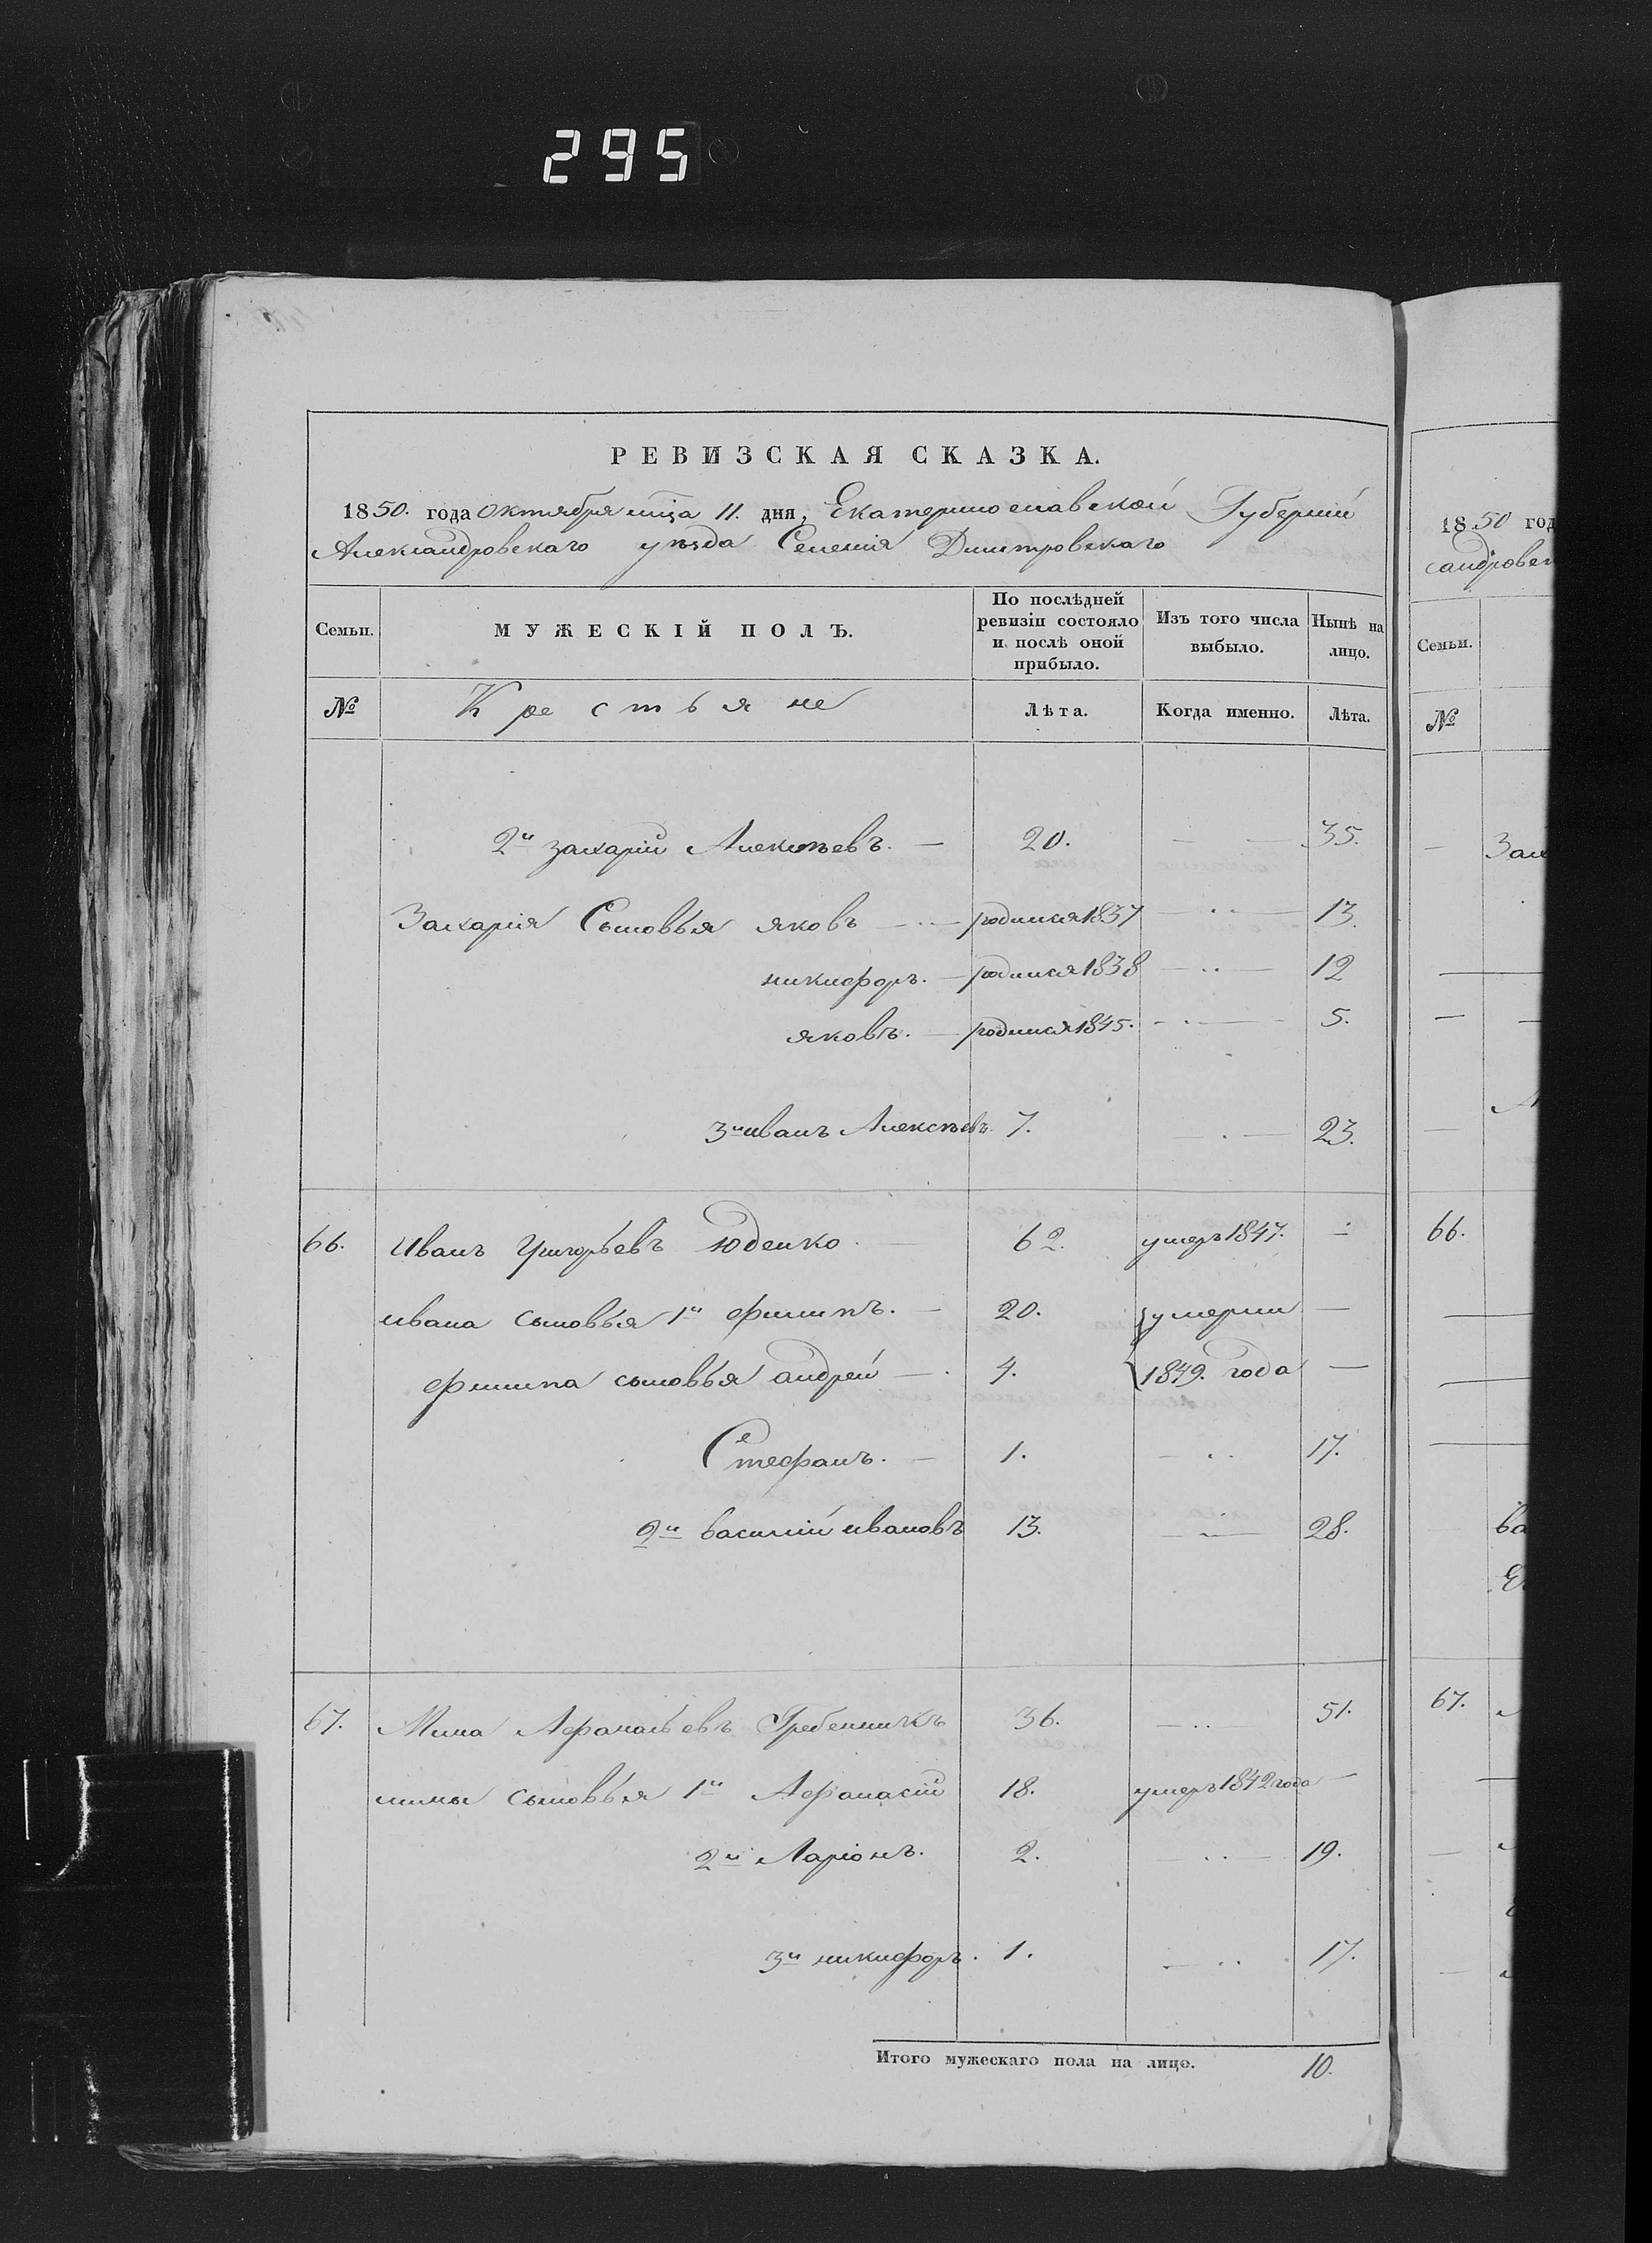 295
РЕВИЗСКАЯ СКАЗКА.
1850. года октября мца 11. дня, Екатеринославской Губерніи
Александровскаго уѣзда Селенія Дмитровскаго
Семьи. МУЖЕСКІЙ ПОЛЪ. По послѣдней ревизіи состояло и послѣ оной прибыло. Изъ того числа выбыло. Нынѣ на лицо.
№ Крестьяне Лѣта. Когда именно. Лѣта.
2й захарій Алексѣевъ. — 20. — — 35.
Захарія Сыновья яковъ — родился 1837 — 13.
никифоръ. — родился 1838 — 12
яковъ. — родился 1845. — 5.
3й иванъ Алексѣевъ 7. — 23.
66. Иванъ Григорьевъ Юденко. — 62. умеръ 1847. —
ивана сыновья 1й филипъ. — 20. умерли —
филипа сыновья андрей — 4. 1849. года —
Стефанъ. — 1. — 17.
2й василій ивановъ 13. — 28.
67. Мина Афанасьевъ Гребенникъ 36. — 51.
мины сыновья 1й Афанасій 18. умеръ 1842 года —
2й Ларіонъ. 2. — 19.
3й никифоръ. 1. — 17.
Итого мужескаго пола на лицо. 10.
1850 год
сандровск
Семьи.
№
Зах
66.
ва
67.